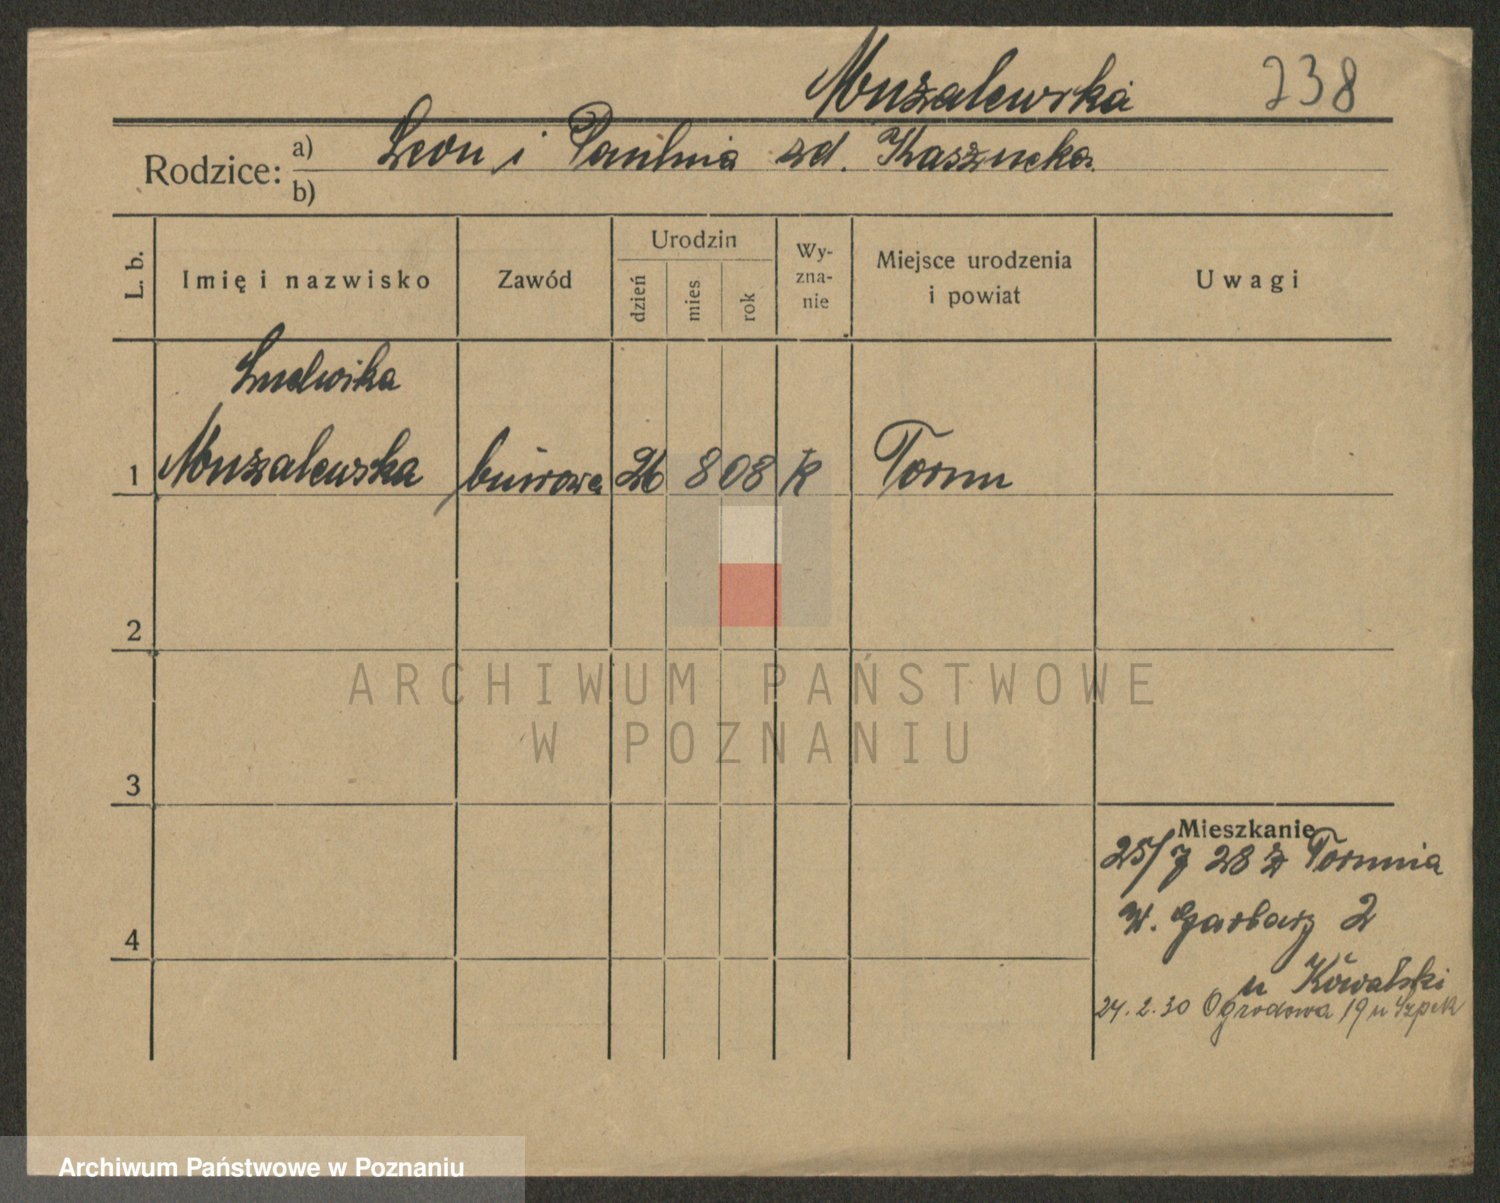 Mużalewska 238
Rodzice: a) Leon i Paulina zd. Kasznicka
b)
L. b. Imię i nazwisko Zawód Urodzin dzień mies rok Wy-zna-nie Miejsce urodzenia i powiat Uwagi
Ludwika
1 Mużalewska biurowa 26 8 08 k Torun
2
3
4
Mieszkanie
25/7 28 z Torunia
W. Garbary 2
u Kowalski
24.2.30 Ogrodowa 19 u Szpek
ARCHIWUM PAŃSTWOWE
W POZNANIU
Archiwum Państwowe w Poznaniu